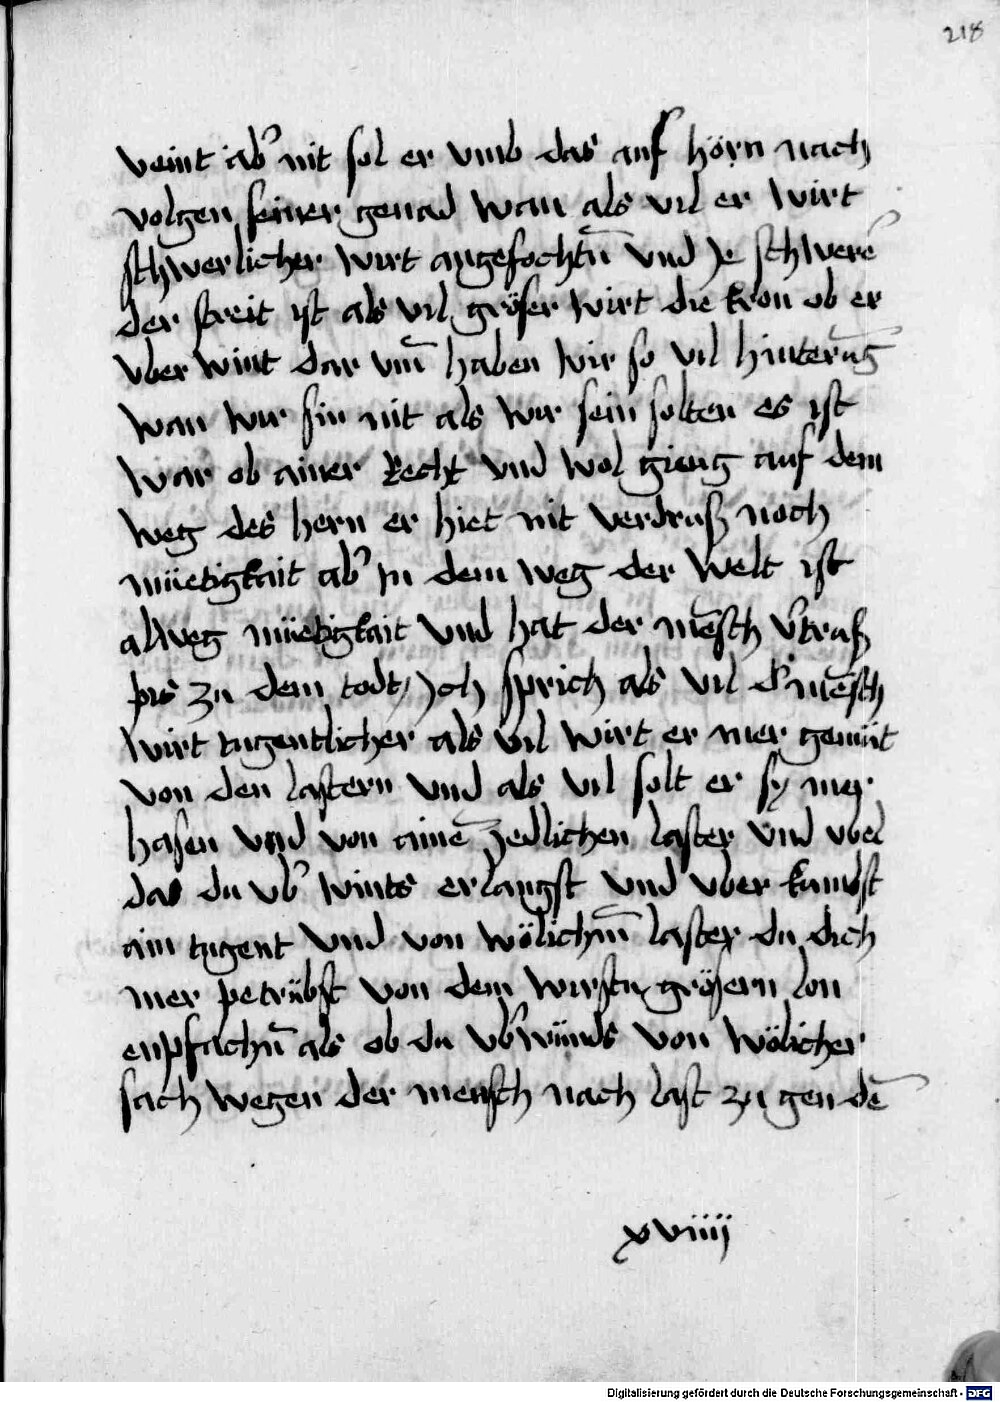 218
veint ab̾ nit sol er vmb das auf hörn nach
volgen seiner genad wan als vil er wirt
schwerlicher wirt angefochtn̄ vnd Je schwere̾
der streit ist als vil gröser wirt die kron ob er
vber wint dar vm̄ haben wir so vil hinterūg
wan wir sin nit als wir sein solten es ist
war ob ainer Recht vnd wol gieng auf dem
weg des hern er hiet nit verdruß noch
müetigkait ab̾ in dem weg der welt ist
alweg müetigkait vnd hat der mēsch v̾traß
pis zu dem todt / Joh sprich als vil d̾ mēsch
wirt tugentlicher als vil wirt er mer gemüt
von den lastern vnd als vil solt er sy mer
hasen vnd von ainē Jedlichen laster vnd vbel
das du vb̾ wints erlangst vnd vber kambst
ain tugent vnd von wölichm̄ laster du dich
mer petrübst von dem wirstu grösern lon
enpfachn̄ als ob du vb̾würds von wölicher
sach wegen der mensch nach last zu gen dē
xviiij
Digitalisierung gefördert durch die Deutsche Forschungsgemeinschaft - DFG